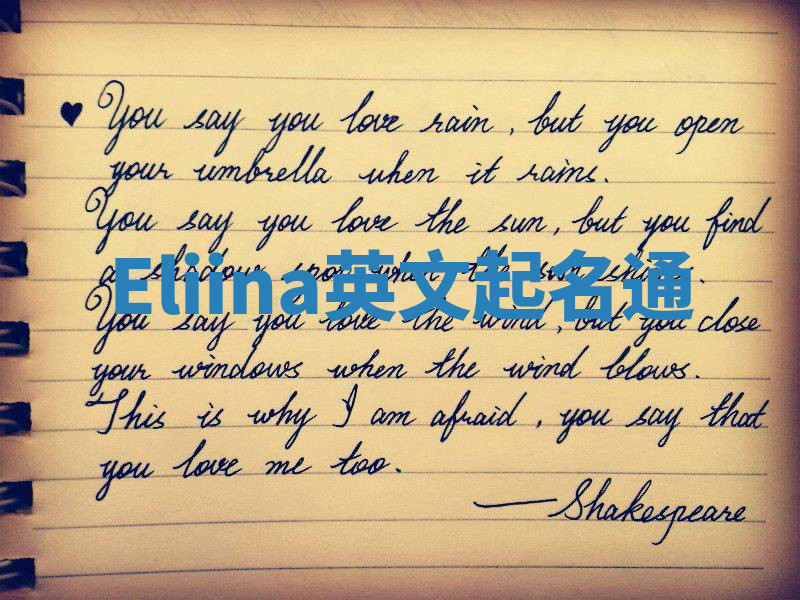 ♥ You say you love rain, but you open
your umbrella when it rains.
You say you love the sun, but you find
a shadow spot when the sun shines.
Eliina英文起名通
You say you love the wind, but you close
your windows when the wind blows.
This is why I am afraid, you say that
you love me too.
—Shakespeare